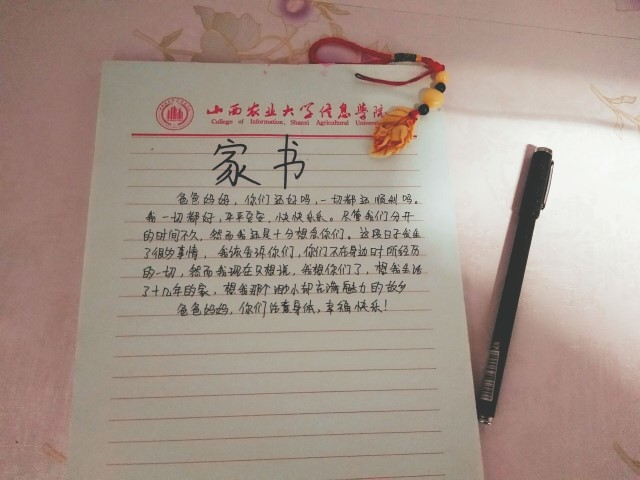 山西农业大学信息学院
College of Information, Shanxi Agricultural University
家书
爸爸妈妈，你们还好吗，一切都还顺利吗。
我一切都好，平平安安，快快乐乐。尽管我们分开
的时间不久，然而我还是十分想念你们。这段日子发生
了很多事情，我该告诉你们，你们不在身边时所经历
的一切，然而我现在只想说，我想你们了，想我生活
了十几年的家，想我那个小却充满魅力的故乡
爸爸妈妈，你们注意身体，幸福快乐！